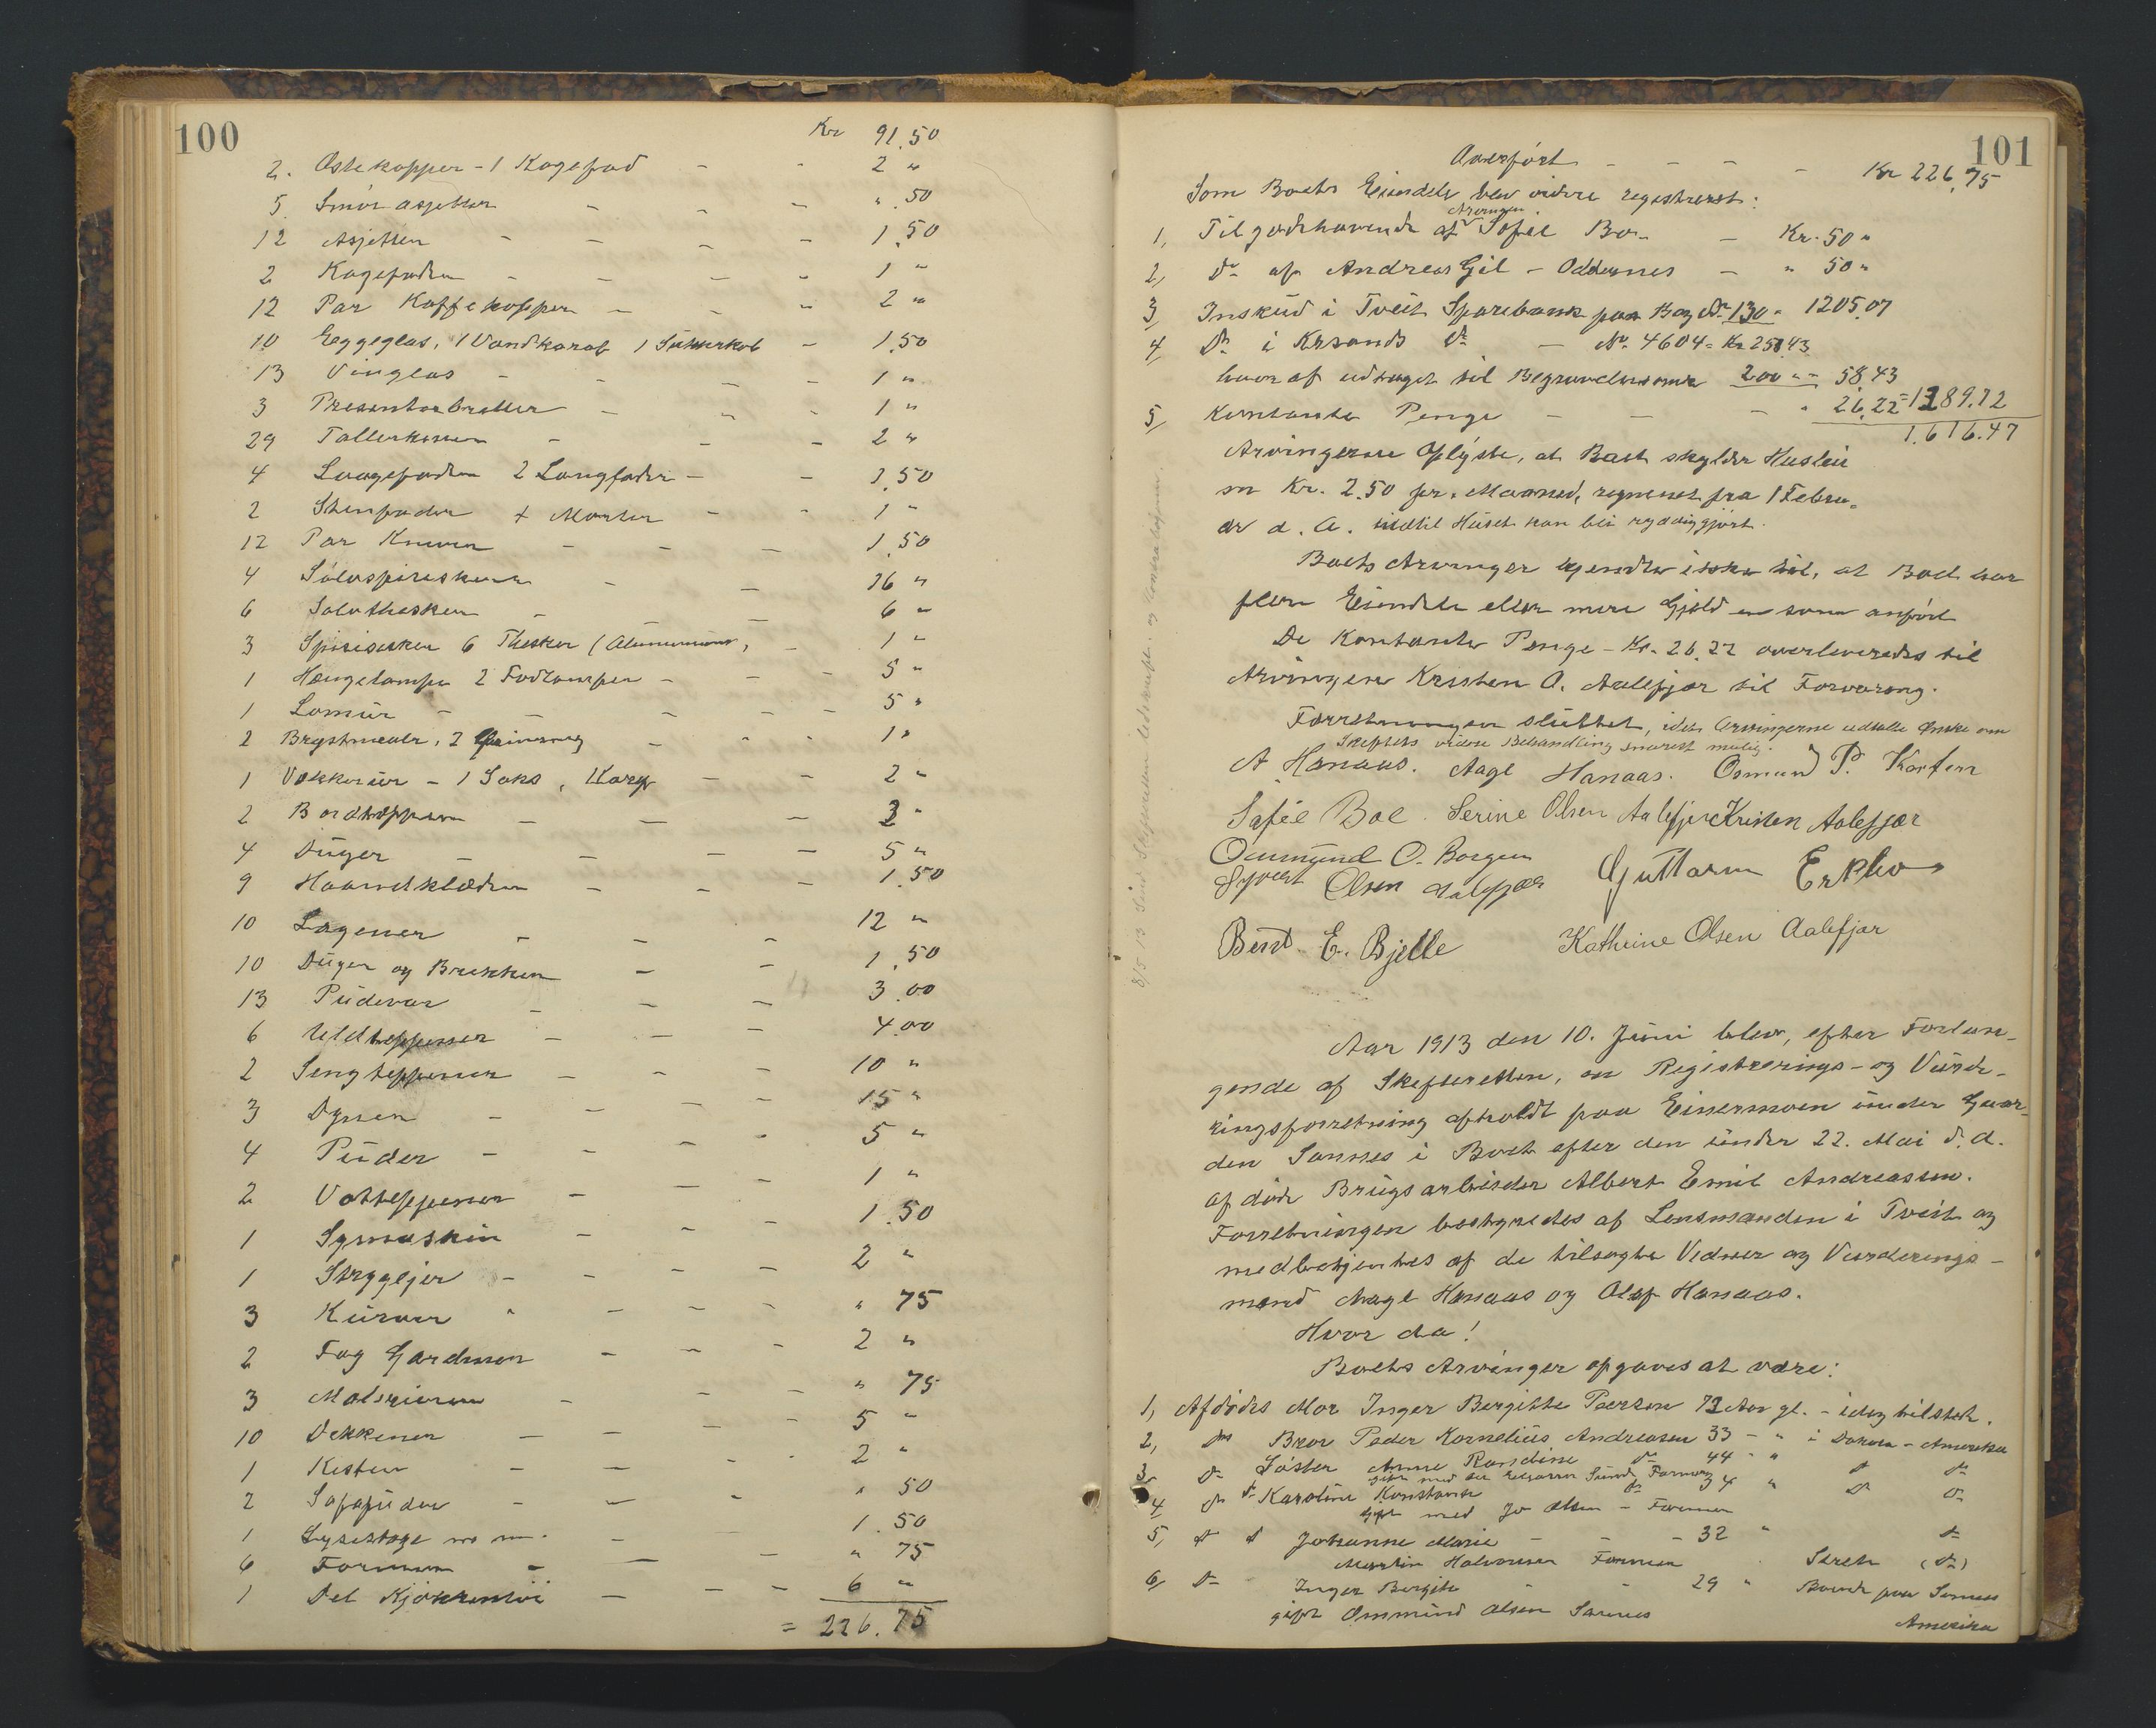 100
Kr 91.50
2. Ostekopper - 1 Kagefad - - 2 "
5 Smör asjetter - - - " .50
12 Asjetter - - - - 1.50
2 Kagefader - - - - 1 "
12 Par Kaffekopper - - - 2 "
10 Eggeglas, 1 Vandkaraf 1 Sukkerkop - 1.50
13 Vinglas - - - - 1 "
3 Presenterbretter - - - 1 "
29 Tallerkener - - - 2 "
4 2 Langfader - - 1.50
2 Stenfader + Morter - - 1 "
12 Par Kniver - - - 1.50
4 Sölvspiseskeer - - 16 "
6 Sölvtheskeer - - 6 "
3 Spiseskeer 6 Theskeer (Aluminium) - 1 "
1 Hængelampe 2 Fodlamper - - - 5 "
1 Lomur - - - - - 5 "
2 Brystnaale, 2 - - - 1 "
1 Vækkerur - 1 Saks, 1 Kurv - - 2 "
2 Bordtæpper - - - 3 "
4 Duger - - - - 5 "
9 Haandklæder - - - 1.50
10 Lagener - - - 12 "
10 Duger og Brikker - - 1.50
13 Pudevar - - - 3.00
6 Uldtepper - - - 4.00
2 Sengtepper - - - 10 "
3 Dyner - - - - 15 "
4 Puder - - - - 5 "
2 Vattepper - - - 1 "
1 Symaskin - - - 1.50
1 Strygejer - - - - 2 "
3 Kurver - - - - " 75
2 Fag Gardiner - - - 2 "
3 Malerier - - - " 75
10 Dekkener - - - - 5 "
1 Kiste - - - - 2 "
2 Sofapuder - - - " 50
1 Lysestage - - 1.50
6 Former - - - " 75
1 Del Kjökkentöi - - - 6 "
= 226.75
101
Overfört - - - - Kr 226,75
Som Boets Eiendele blev videre registreret:
1, Tilgodehavende af Arvingen Sofie Boe - Kr. 50 "
2, Do af Andreas Gil - Oddernes - " 50 "
3, Inskud i Tveit Sparebank paa Bog No 130 - 1205,07
4, Do i Krsands Do - No 4604 = Kr 258,43
hvoraf udtaget til Begravelsen 200 " = 58,43
5, Kontante Penge - - - " 26,22 = 1389.72
1.616.47
Arvingerne oplyste, at Boet skylder Husleie
m Kr. 2.50 pr. Maaned, regnet fra 1 Febru-
ar d. A. indtil Huset kan bli ryddiggjort.
Boets Arvinger kjendte ikke til, at Boet har
flere Eiendele eller mere Gjeld en som anfört
De Kontante Penge - Kr. 26.22 overleveredes til
Arvingen Kristen O. Aalefjær til Forvaring.
Forretningen sluttet, idet Arvingerne udtalte Ønske om
Skiftets videre Behandling snarest mulig.
A Hanaas. Aage Hanaas. Osmund P.
Sofie Boe. Serine Olsen Aalefjær Kristen Aalefjær
Ommund O. Borgen Guttorm
Syvert Olsen Aalefjær
Bent E. Bjelle Kathrine Olsen Aalefjær
8/5 13
Aar 1913 den 10. Juni blev, efter Forlan-
gende af Skifteretten, en Registrerings- og Vurde-
ringsforretning afholdt paa Einermoen under Gaar-
den Sonnes i Boet efter den under 22. Mai d. A.
afdöde Brugsarbeider Albert Emil Andreassen.
Forretningen bestyredes af Lensmanden i Tveit og
medbetjentes af de tilsagte Vidner og Vurderings-
mænd Aage Hanaas og Olaf Hanaas.
Hvor da!
Boets Arvinger opgaves at være:
1, Afdödes Mor Inger Bergitte Peersen 73 Aar gl. - idag tilstede.
2, Do Bror Peder Kornelius Andreasen 33 - " i Dakota - Amerika
3, Do Söster Anne Randine Do 44 - " Do Do
gift med
4, Do Do Karoline Konstanse Do 34 " Do Do
gift med Jo Olsen - Farmer
5, Do Do Johanne Marie - - - 32 " Do
Martin Halvorsen Farmer (Do)
6, Do Inger Bergite - - 29 "
gift Ommund Olsen Sonnes
Amerika